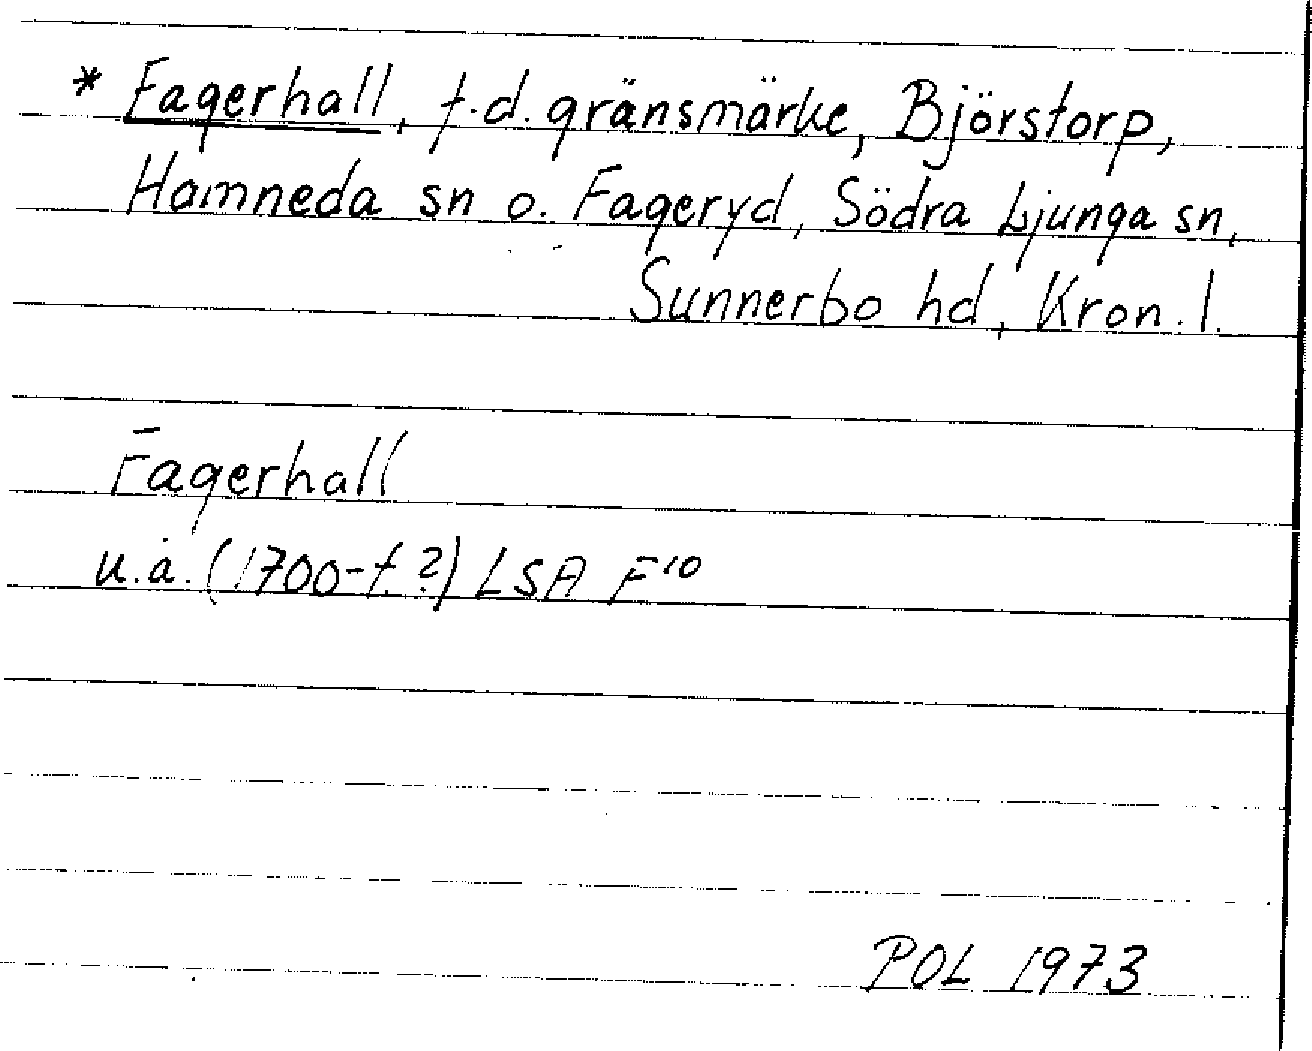 * Fagerhall, f.d. gränsmärke, Björstorp,
Hamneda sn o. Fageryd, Södra Ljunga sn,
Sunnerbo hd, Kron. l.
Fagerhall
u.å. (1700-t.?) LSA F10
POL 1973